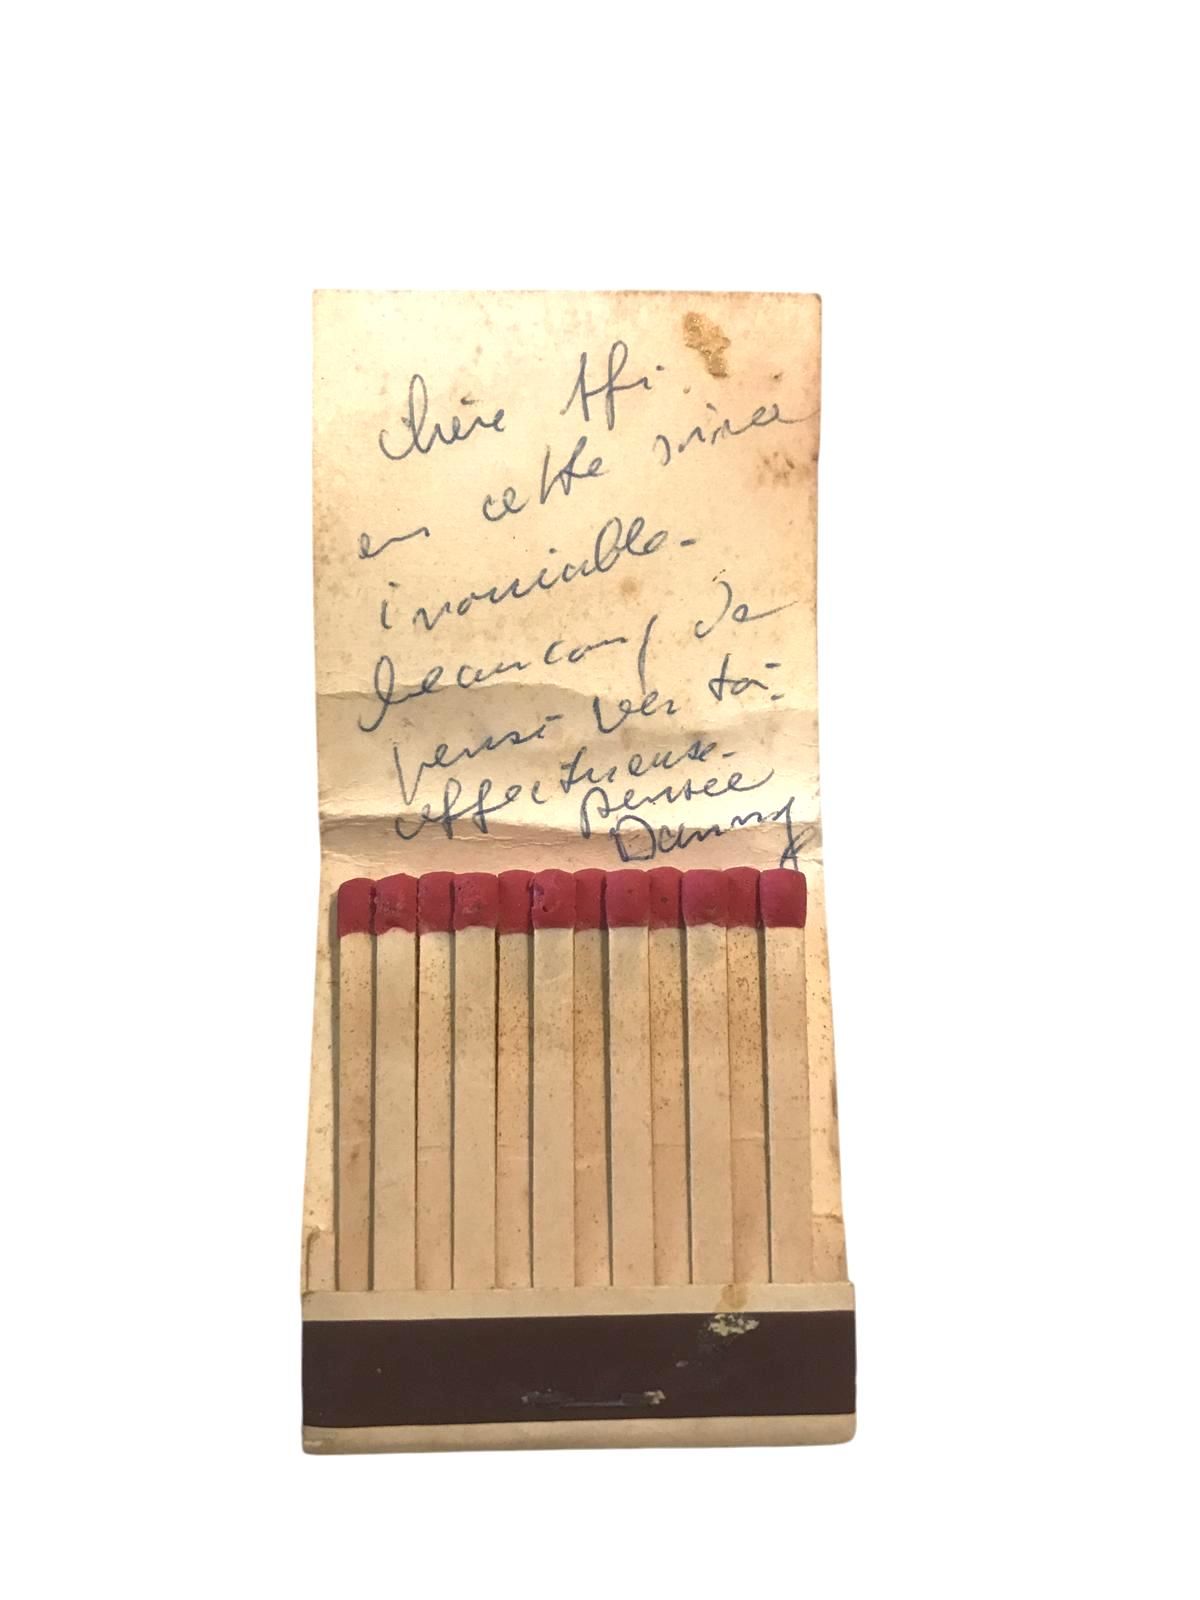 chère Afi
en cette soirée
inoubliable.
beaucoup de
pensé ver toi.
affectueuse.
pensée
Danny